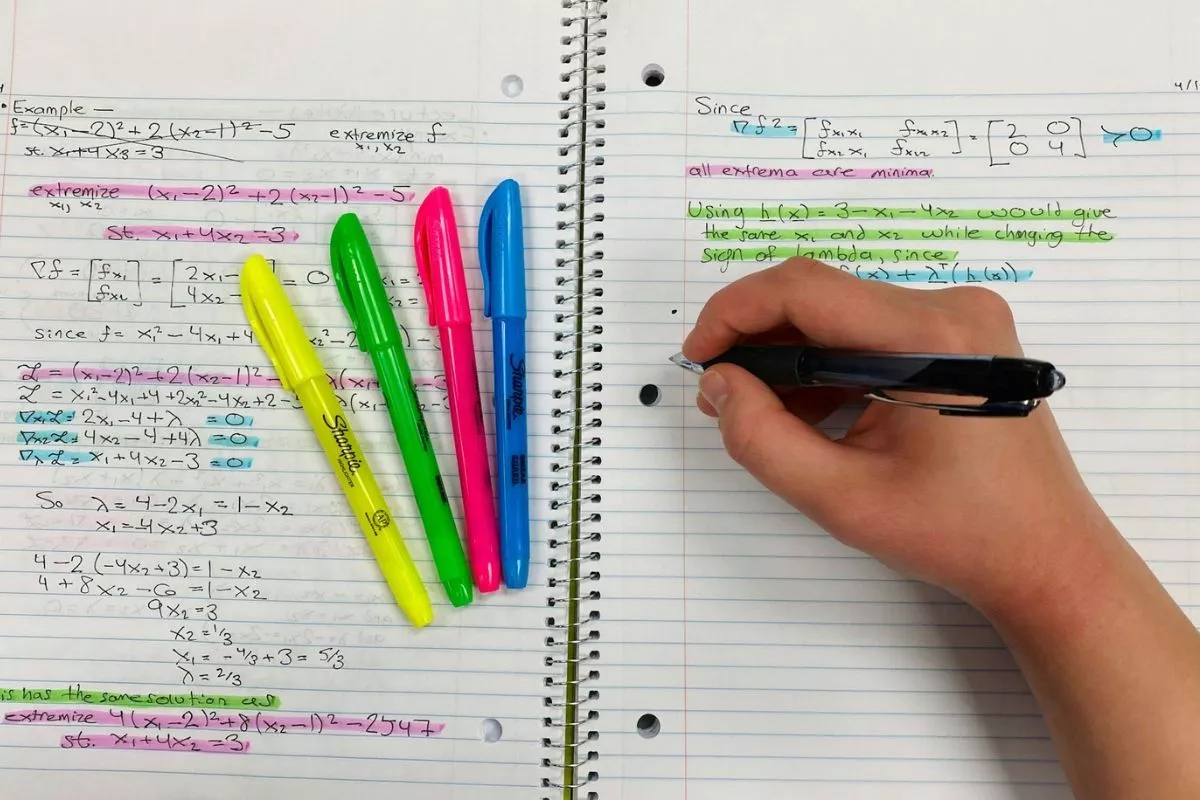 • Example —
f=(x₁-2)²+2(x₂-1)²-5 extremize f
x₁,x₂
st. x₁+4x₃=3
extremize (x₁-2)²+2(x₂-1)²-5
x₁, x₂
st. x₁+4x₂=3
∇f = [fx₁ fx₂] = [2x₁- 4x₂ = 0
since f= x₁²-4x₁+4
ℒ = (x₁-2)²+2(x₂-1)²-
ℒ = x₁²-4x₁+4+2x₂²-4x₂+2-
∇x₁ℒ= 2x₁-4+λ =0
∇x₂ℒ= 4x₂-4+4λ =0
∇λℒ= x₁+4x₂-3 =0
So λ=4-2x₁=1-x₂
x₁=-4x₂+3
4-2(-4x₂+3)=1-x₂
4+8x₂-6=1-x₂
9x₂=3
x₂=1/3
x₁=-4/3+3=5/3
λ=2/3
is has the same solution as
extremize 4(x₁-2)²+8(x₂-1)²-2547
st. x₁+4x₂=3
Sharpie
HIGHLIGHTER
Sharpie
4/1
Since
∇f2= [fx₁x₁ fx₁x₂ fx₂x₁ fx₂x₂] = [2 0 0 4] ≻0
all extrema are minima.
Using h(x)=3-x₁-4x₂ would give
the same x₁ and x₂ while changing the
sign of lambda, since
f(x)+λᵀ(h(x))